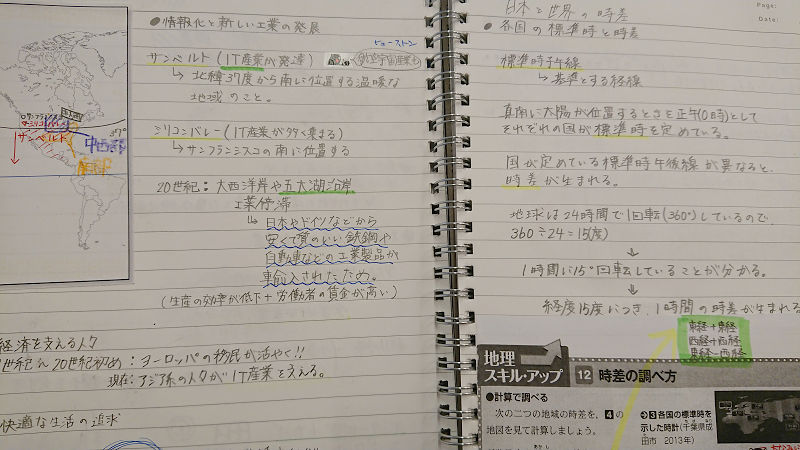 ●情報化と新しい工業の発展
ヒューストン
サンベルト(IT産業が発達)
↳北緯37度から南に位置する温暖な
地域のこと。
シリコンバレー(IT産業が多く集まる)
↳サンフランシスコの南に位置する
20世紀:大西洋岸や五大湖沿岸
工業停滞
↳日本やドイツなどから
安くて質のいい鉄鋼や
自動車などの工業製品が
輸入されたため。
(生産の効率が低下+労働者の賃金が高い)
サンフランシスコ
シリコンバレー
サンベルト
37°
中西部
南部
経済を支える人々
世紀〜20世紀初め:ヨーロッパの移民が活やく!!
現在:アジア系の人々がIT産業を支える。
快適な生活の追求
Page:
Date:
日本と世界の時差
●各国の標準時と時差
標準時子午線
↳基準とする経線
真南に太陽が位置するときを正午(0時)として
それぞれの国が標準時を定めている。
国が定めている標準時午後線が異なると、
時差が生まれる。
地球は24時間で1回転(360°)しているので、
360÷24=15(度)
↓
1時間に15°回転していることが分かる。
↓
経度15度につき、1時間の時差が生まれる
東経+東経
西経+西経
東経-西経
地理
スキル・アップ
12 時差の調べ方
●計算で調べる
次の二つの地域の時差を、4の
地図を見て計算しましょう。
3各国の標準時を
示した時計(千葉県成
田市 2013年)